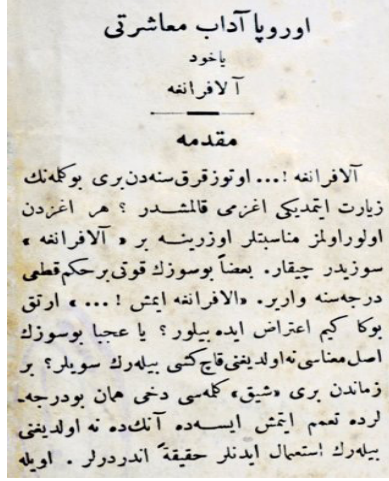 اوروپا آداب معاشرتی
یاخود
آلافرانغه
مقدمه
آلافرانغه !... اوتوز قرق سنه‌دن بری بو كلمه‌نك
زیارت ایتمدیكی اغزمی قالمشدر ؟ هر اغزدن
اولور اولمز مناسبتلر اوزرینه بر « آلافرانغه »
سوزیدر چیقار. بعضاً بو سوزك قوتی بر حكم قطعی
درجه‌سنه واریر. «الافرانغه ایمش !... » ارتق
بوكا كیم اعتراض ایده بیلور ؟ یا عجبا بو سوزك
اصل معناسی نه اولدیغنی قاچ كشی بیله‌رك سویلر؟ بر
زماندن بری «شیق» كله‌سی دخی همان بو درجه‌ـ
لرده تعمم ایتمش ایسه‌ده آنك‌ده نه اولدیغنی
بیله‌رك استعمال ایدنلر حقیقةً اندردرلر . اویله